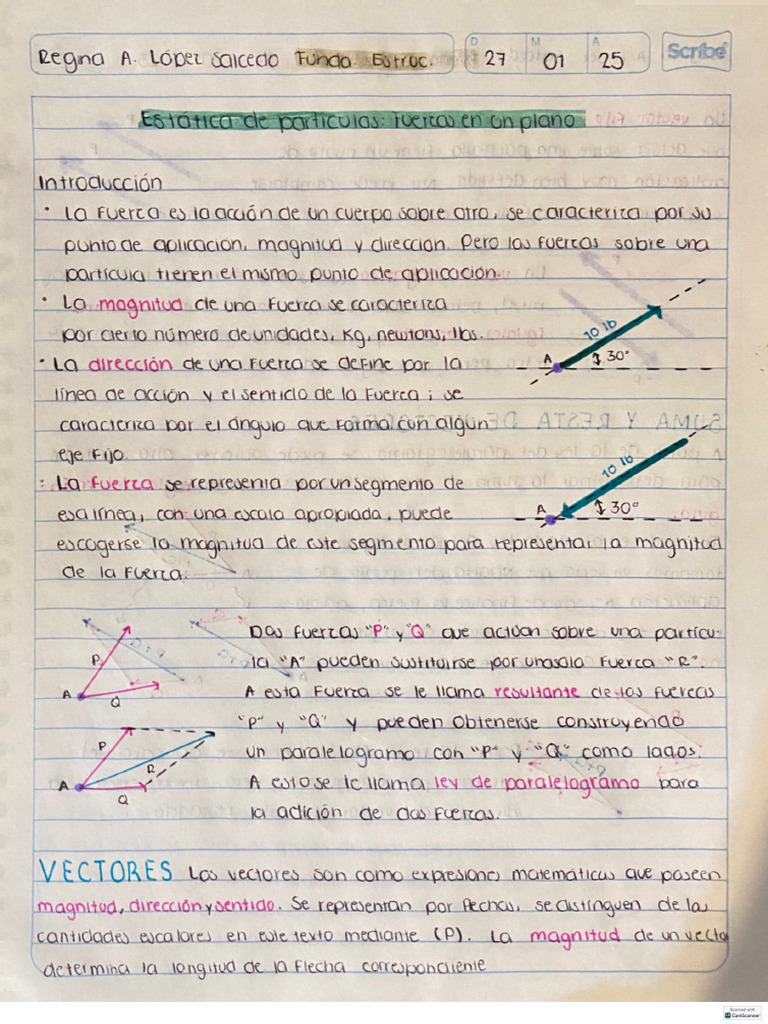 Regina A. López Salcedo Funda Estruc.
D M A
27 01 25
Scribe
Estática de partículas: fuerzas en un plano
Introducción
• La fuerza es la acción de un cuerpo sobre otro, se caracteriza por su
punto de aplicación, magnitud y dirección. Pero las fuerzas sobre una
partícula tienen el mismo punto de aplicación.
• La magnitud de una fuerza se caracteriza
por cierto número de unidades, Kg, newtons, lbs.
• La dirección de una fuerza se define por la
línea de acción y el sentido de la fuerza; se
caracteriza por el ángulo que forma con algún
eje fijo.
: La fuerza se representa por un segmento de
esa línea, con una escala apropiada, puede
escogerse la magnitud de este segmento para representar la magnitud
de la fuerza.
10 lb
A
30°
10 lb
A
30°
P
A
Q
P
R
A
Q
Dos fuerzas "P" y "Q" que actúan sobre una partícu-
la "A" pueden sustituirse por una sola fuerza "R".
A esta fuerza se le llama resultante de las fuerzas
"P" y "Q" y pueden obtenerse construyendo
un paralelogramo con "P" y "Q" como lados.
A esto se le llama ley de paralelogramo para
la adición de dos fuerzas.
VECTORES Los vectores son como expresiones matemáticas que poseen
magnitud, dirección y sentido. Se representan por flechas, se distinguen de las
cantidades escalares en este texto mediante (P). La magnitud de un vecto
determina la longitud de la flecha correspondiente
Scanned with
CamScanner